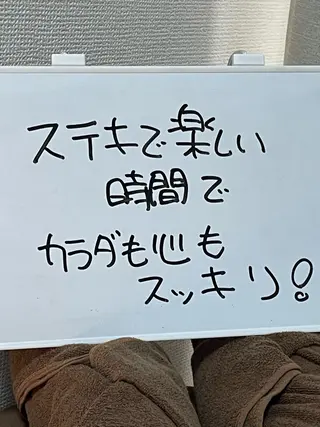 ステキで楽しい
時間で
カラダも心も
スッキリ!